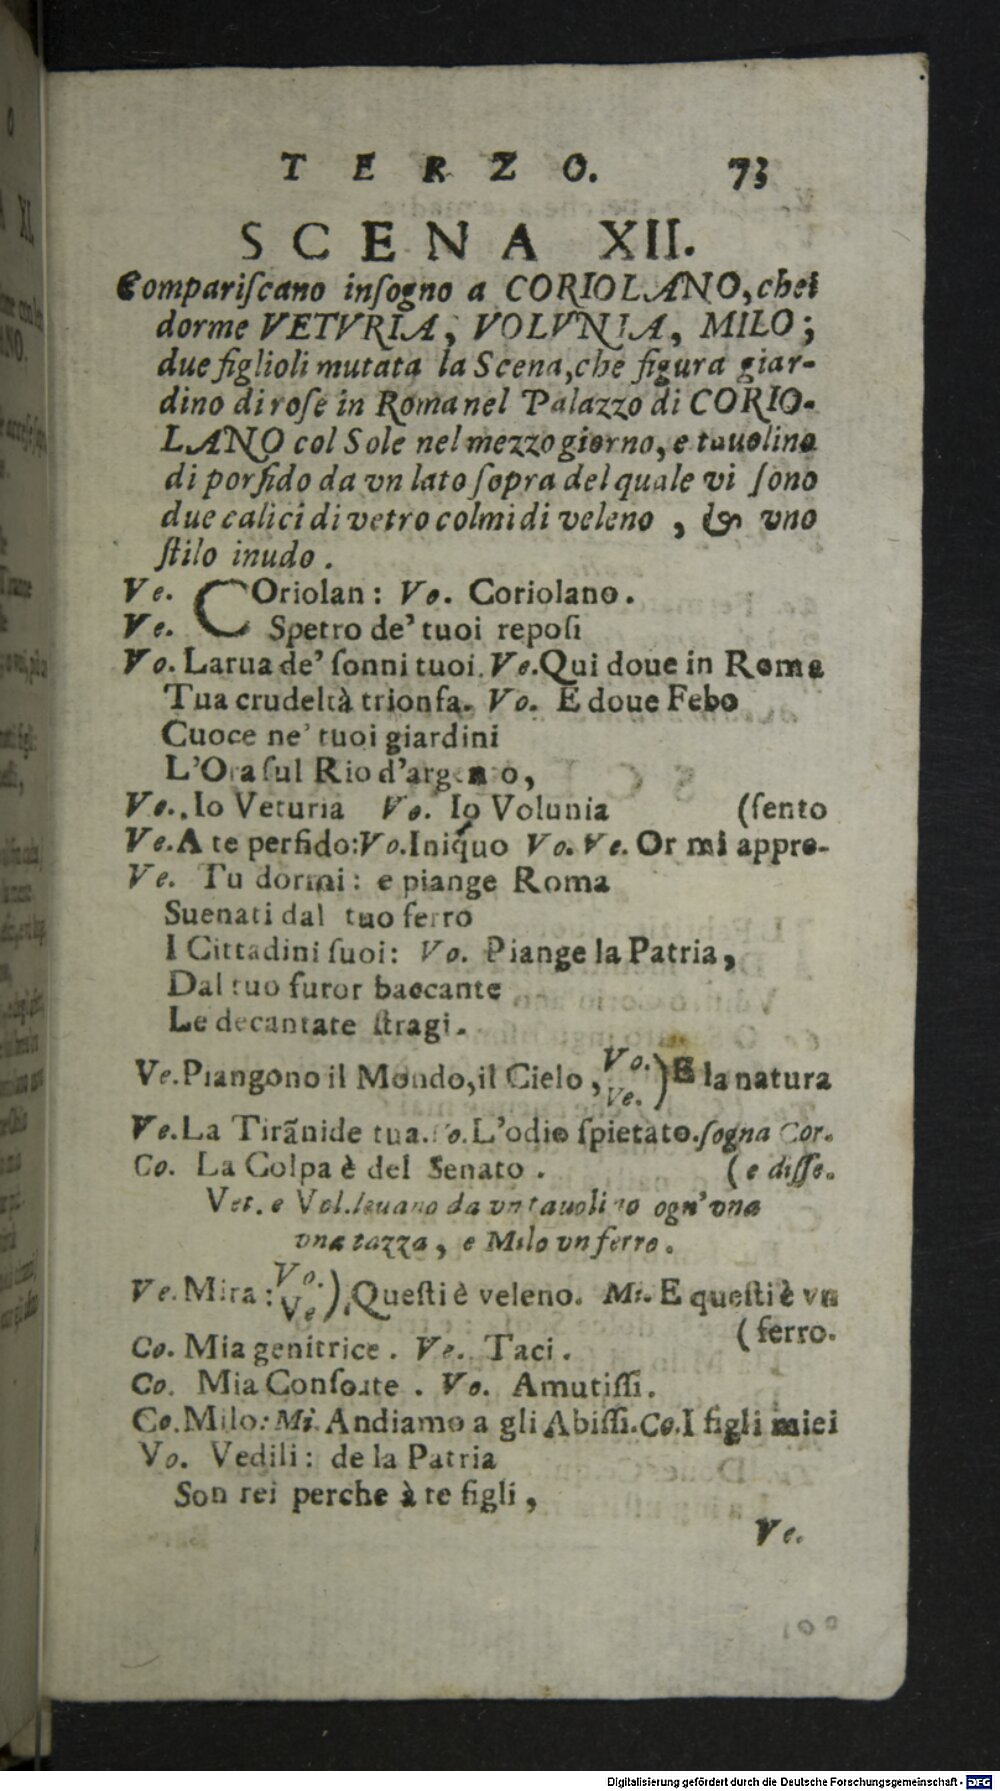 TERZO. 73
SCENA XII.
Compariſcano inſogno a CORIOLANO, chei
dorme VETVRIA, VOLVNIA, MILO;
due figlioli mutata la Scena, che figura giar-
dino di roſe in Roma nel Palazzo di CORIO-
LANO col Sole nel mezzo giorno, e tauolino
di porfido da vn lato ſopra del quale vi ſono
due calici di vetro colmi di veleno, & vno
ſtilo inudo.
Ve. COriolan: Vo. Coriolano.
Ve. Spetro de' tuoi repoſi
Vo. Larua de' ſonni tuoi. Ve. Qui doue in Roma
Tua crudeltà trionfa. Vo. E doue Febo
Cuoce ne' tuoi giardini
L'Ora ſul Rio d'argento,
Ve. Io Veturia Vo. Io Volunia (ſento
Ve. A te perfido: Vo. Iniquo Vo. Ve. Or mi appre-
Ve. Tu dormi: e piange Roma
Suenati dal tuo ferro
I Cittadini ſuoi: Vo. Piange la Patria,
Dal tuo furor baccante
Le decantate ſtragi.
Ve. Piangono il Mondo, il Cielo, Vo. Ve. ) E la natura
Ve. La Tirãnide tua. Vo. L'odio ſpietato. ſogna Cor.
Co. La Colpa è del Senato. (e diſſe.
Vet. e Vol. leuano da vn tauolino ogn'vna
vna tazza, e Milo vn ferro.
Ve. Mira: Vo. Ve ). Queſti è veleno. Mi. E queſti è vn
(ferro.
Co. Mia genitrice. Ve. Taci.
Co. Mia Conſorte. Vo. Amutiſſi.
Co. Milo: Mi. Andiamo a gli Abiſſi. Co. I figli miei
Vo. Vedili: de la Patria
Son rei perche à te figli,
Ve.
Digitalisierung gefördert durch die Deutsche Forschungsgemeinschaft - DFG